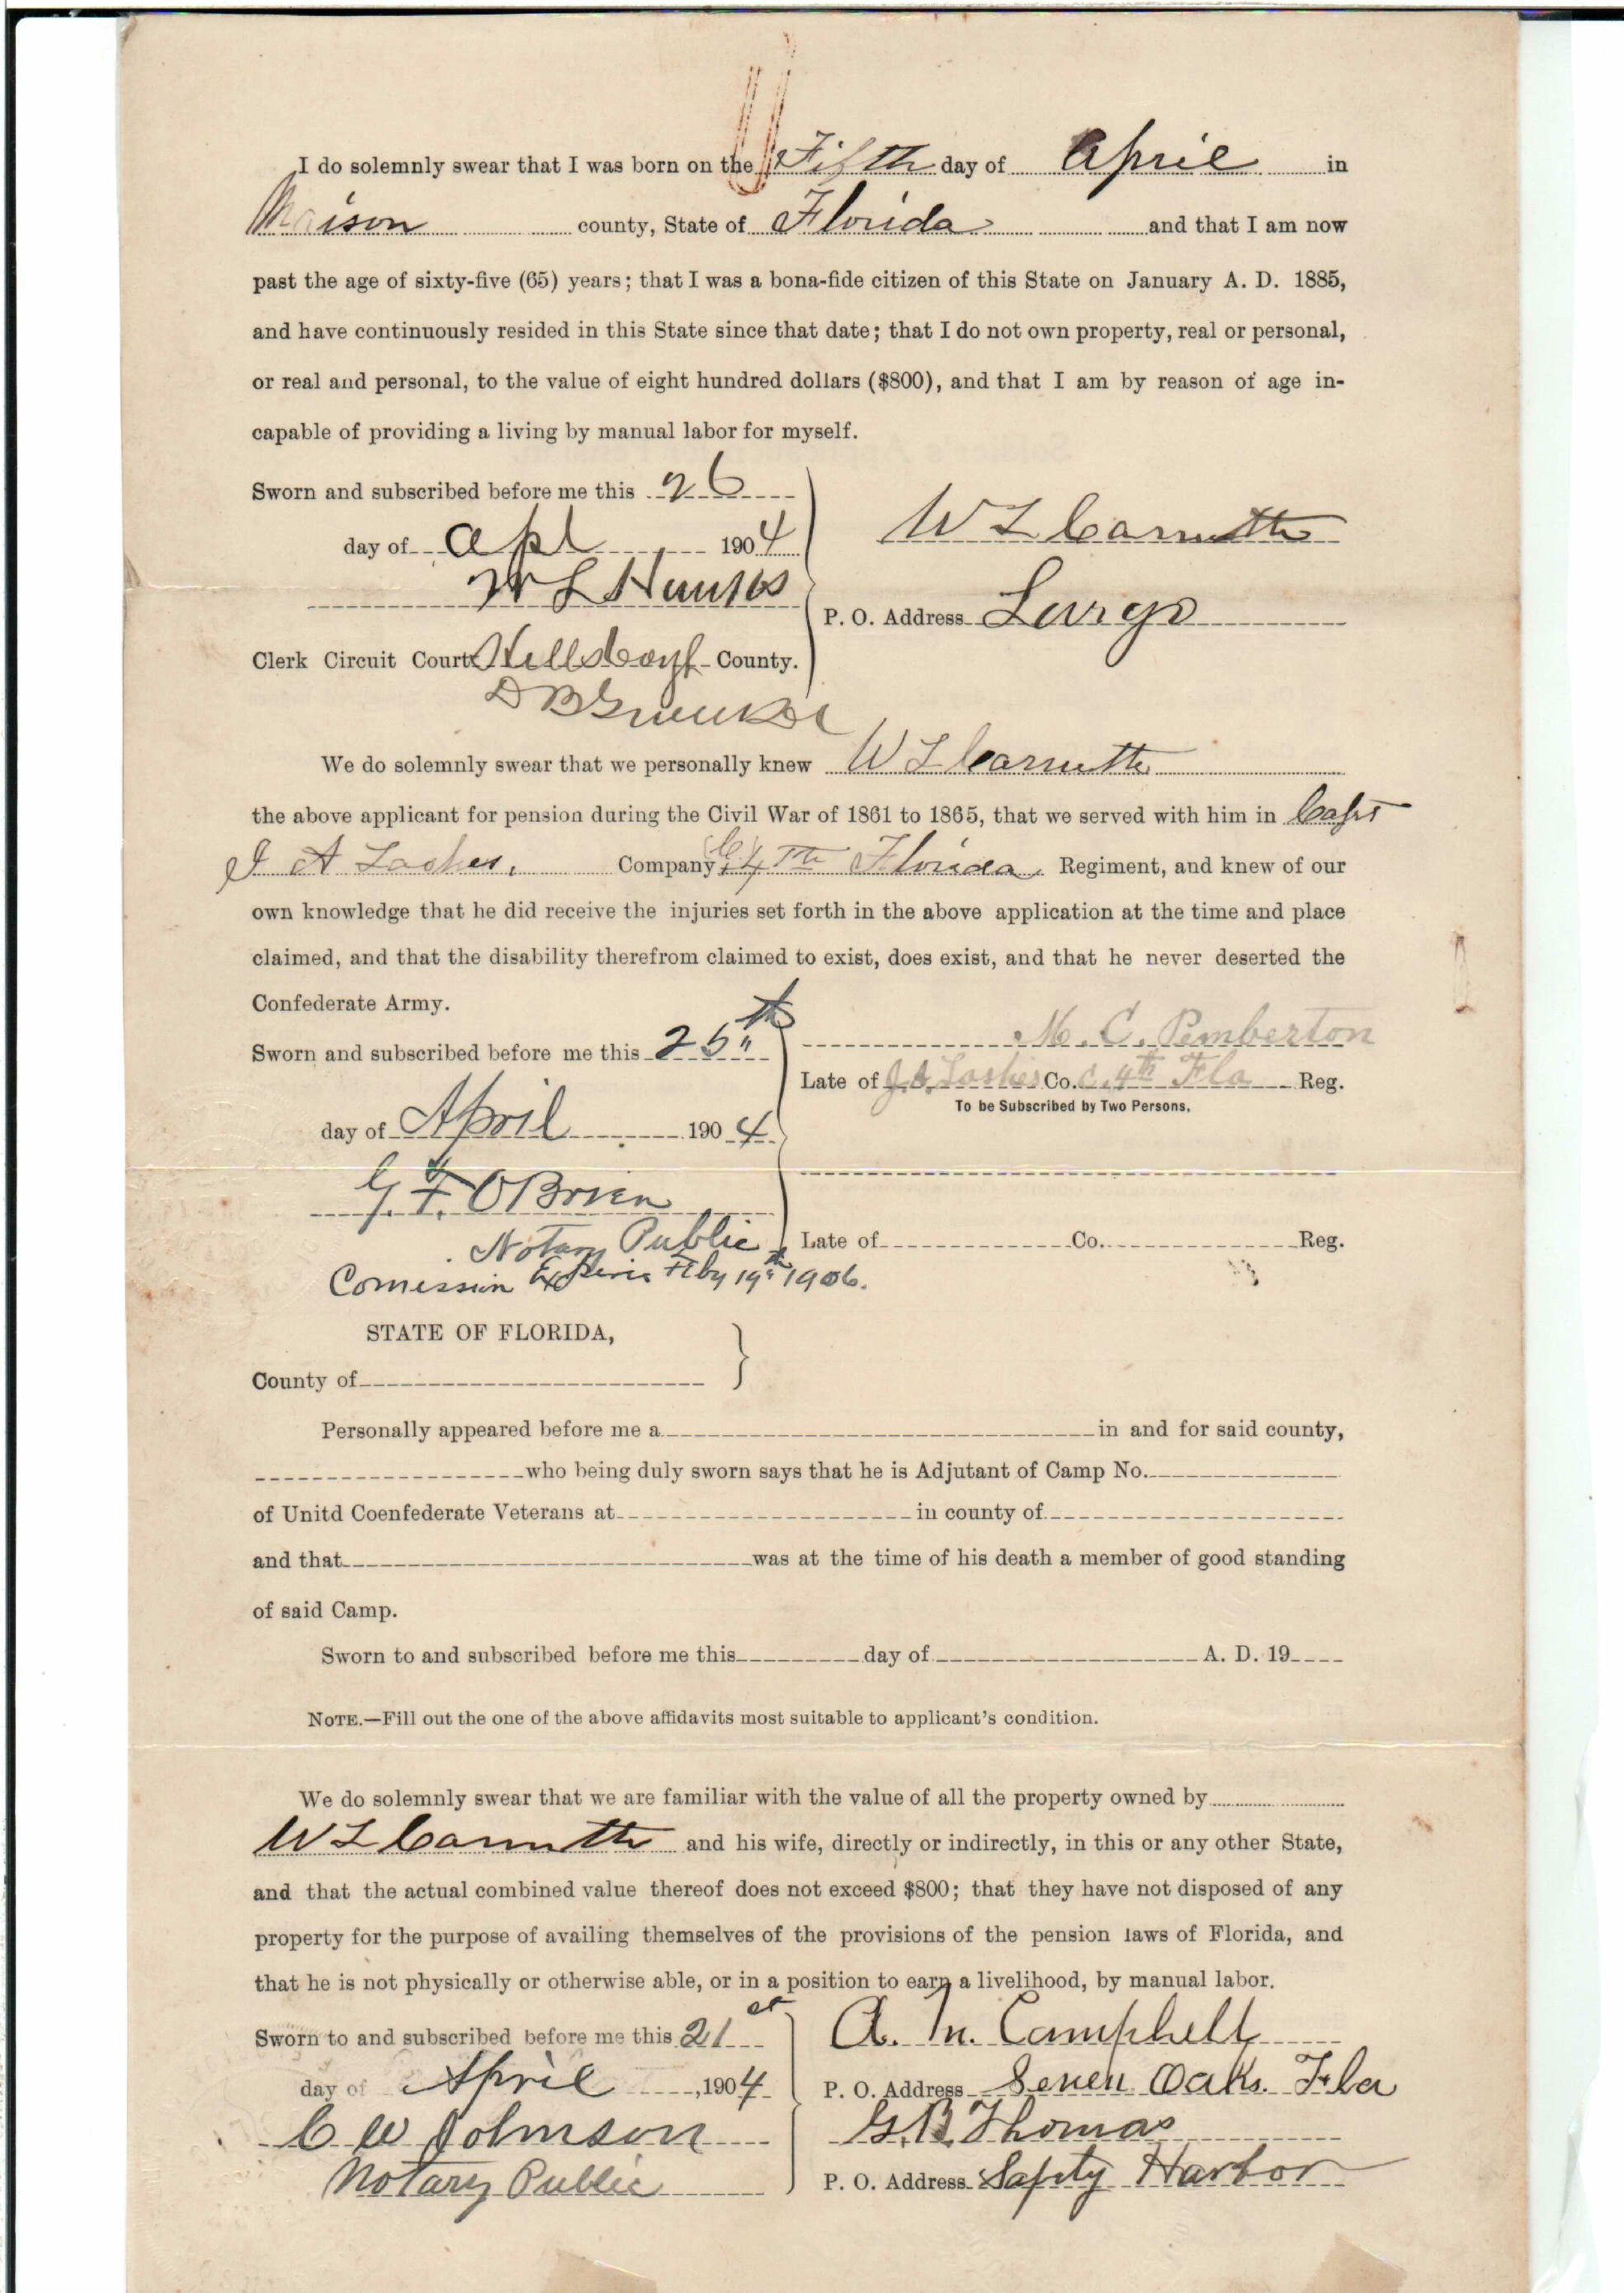 I do solemnly swear that I was born on the Fifth day of April in
Maison county, State of Florida and that I am now
past the age of sixty-five (65) years; that I was a bona-fide citizen of this State on January A. D. 1885,
and have continuously resided in this State since that date; that I do not own property, real or personal,
or real and personal, to the value of eight hundred dollars ($800), and that I am by reason of age in-
capable of providing a living by manual labor for myself.
Sworn and subscribed before me this 26
day of apl 1904
W L Carruth
W L
P. O. Address Largo
Clerk Circuit Court County.
D B
We do solemnly swear that we personally knew W L Carruth
the above applicant for pension during the Civil War of 1861 to 1865, that we served with him in Capt
J A Lashes, Company C 4th Florida Regiment, and knew of our
own knowledge that he did receive the injuries set forth in the above application at the time and place
claimed, and that the disability therefrom claimed to exist, does exist, and that he never deserted the
Confederate Army.
Sworn and subscribed before me this 25th
M. C. Pemberton
Late of J. A. Lashes Co. C. 4th Fla Reg.
To be Subscribed by Two Persons.
day of April 1904
G. F. OBrien
Notary Public
Late of Co. Reg.
Comission Expires Feby 19th 1906.
STATE OF FLORIDA,
County of
Personally appeared before me a in and for said county,
who being duly sworn says that he is Adjutant of Camp No.
of Unitd Coenfederate Veterans at in county of
and that was at the time of his death a member of good standing
of said Camp.
Sworn to and subscribed before me this day of A. D. 19
NOTE.—Fill out the one of the above affidavits most suitable to applicant's condition.
We do solemnly swear that we are familiar with the value of all the property owned by
W L Carruth and his wife, directly or indirectly, in this or any other State,
and that the actual combined value thereof does not exceed $800; that they have not disposed of any
property for the purpose of availing themselves of the provisions of the pension laws of Florida, and
that he is not physically or otherwise able, or in a position to earn a livelihood, by manual labor.
Sworn to and subscribed before me this 21st
A. M. Campbell
day of April, 1904
P. O. Address Seven Oaks. Fla
C W Johnson
G. B. Thomas
Notary Public
P. O. Address Safty Harbor